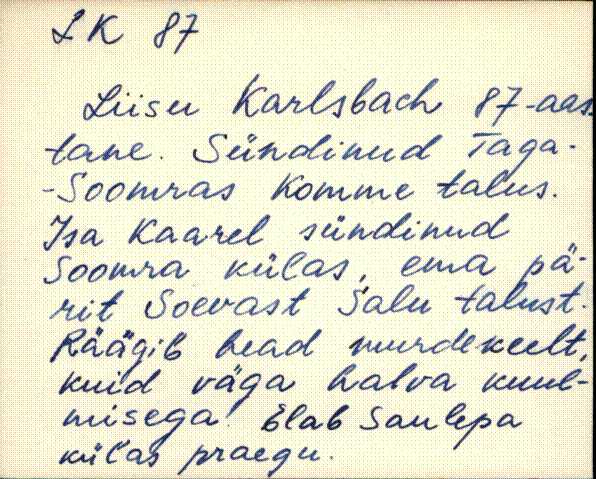 LK 87
Liisu Karlsbach 87-aas-
tane. Sündinud Taga-
-Soomras Komme talus.
Isa Kaarel sündinud
Soomra külas, ema pä-
rit Soevast Salu talust.
Räägib head murdekeelt,
kuid väga halva kuul-
misega. Elab Saulepa
külas praegu.